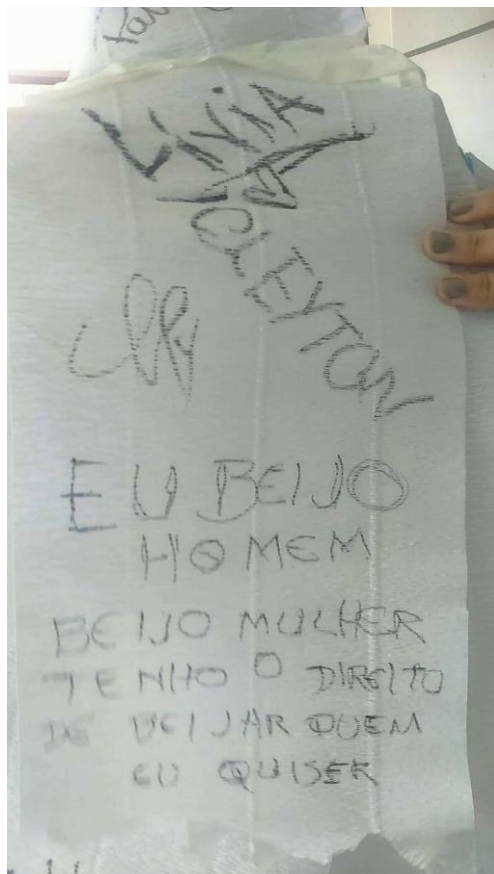 LIVIA
CLEYTON
EU BEIJO
HOMEM
BEIJO MULHER
TENHO O DIREITO
DE BEIJAR QUEM
EU QUISER